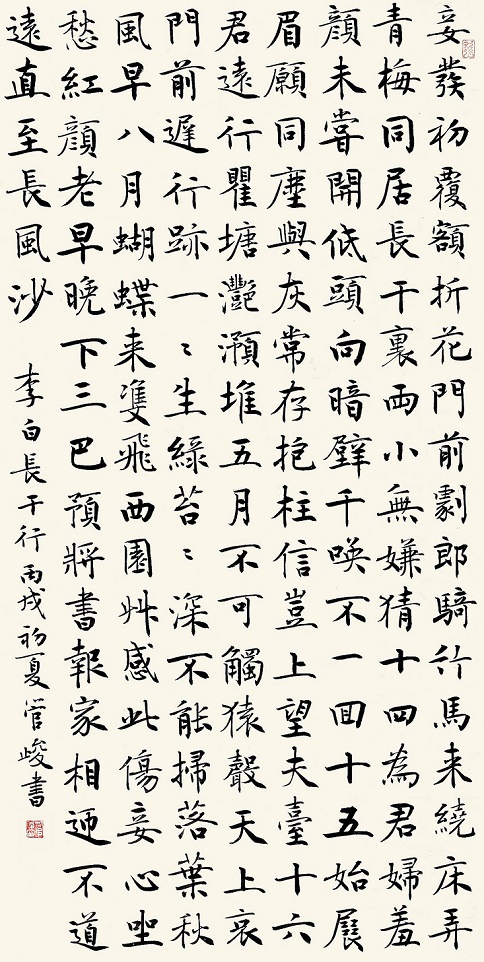 妾發初覆額折花門前劇郎騎竹馬来繞床弄
青梅同居長干裏兩小無嫌猜十四為君婦羞
顏未嘗開低頭向暗壁千喚不一囬十五始展
眉願同塵與灰常存抱柱信豈上望夫臺十六
君遠行瞿塘灩澦堆五月不可觸猿聲天上哀
門前遲行跡一〻生綠苔〻深不能掃落葉秋
風早八月蝴蝶来雙飛西園艸感此傷妾心坐
愁紅顏老早晚下三巴預將書報家相迎不道
遠直至長風沙
李白長干行丙戌初夏管峻書